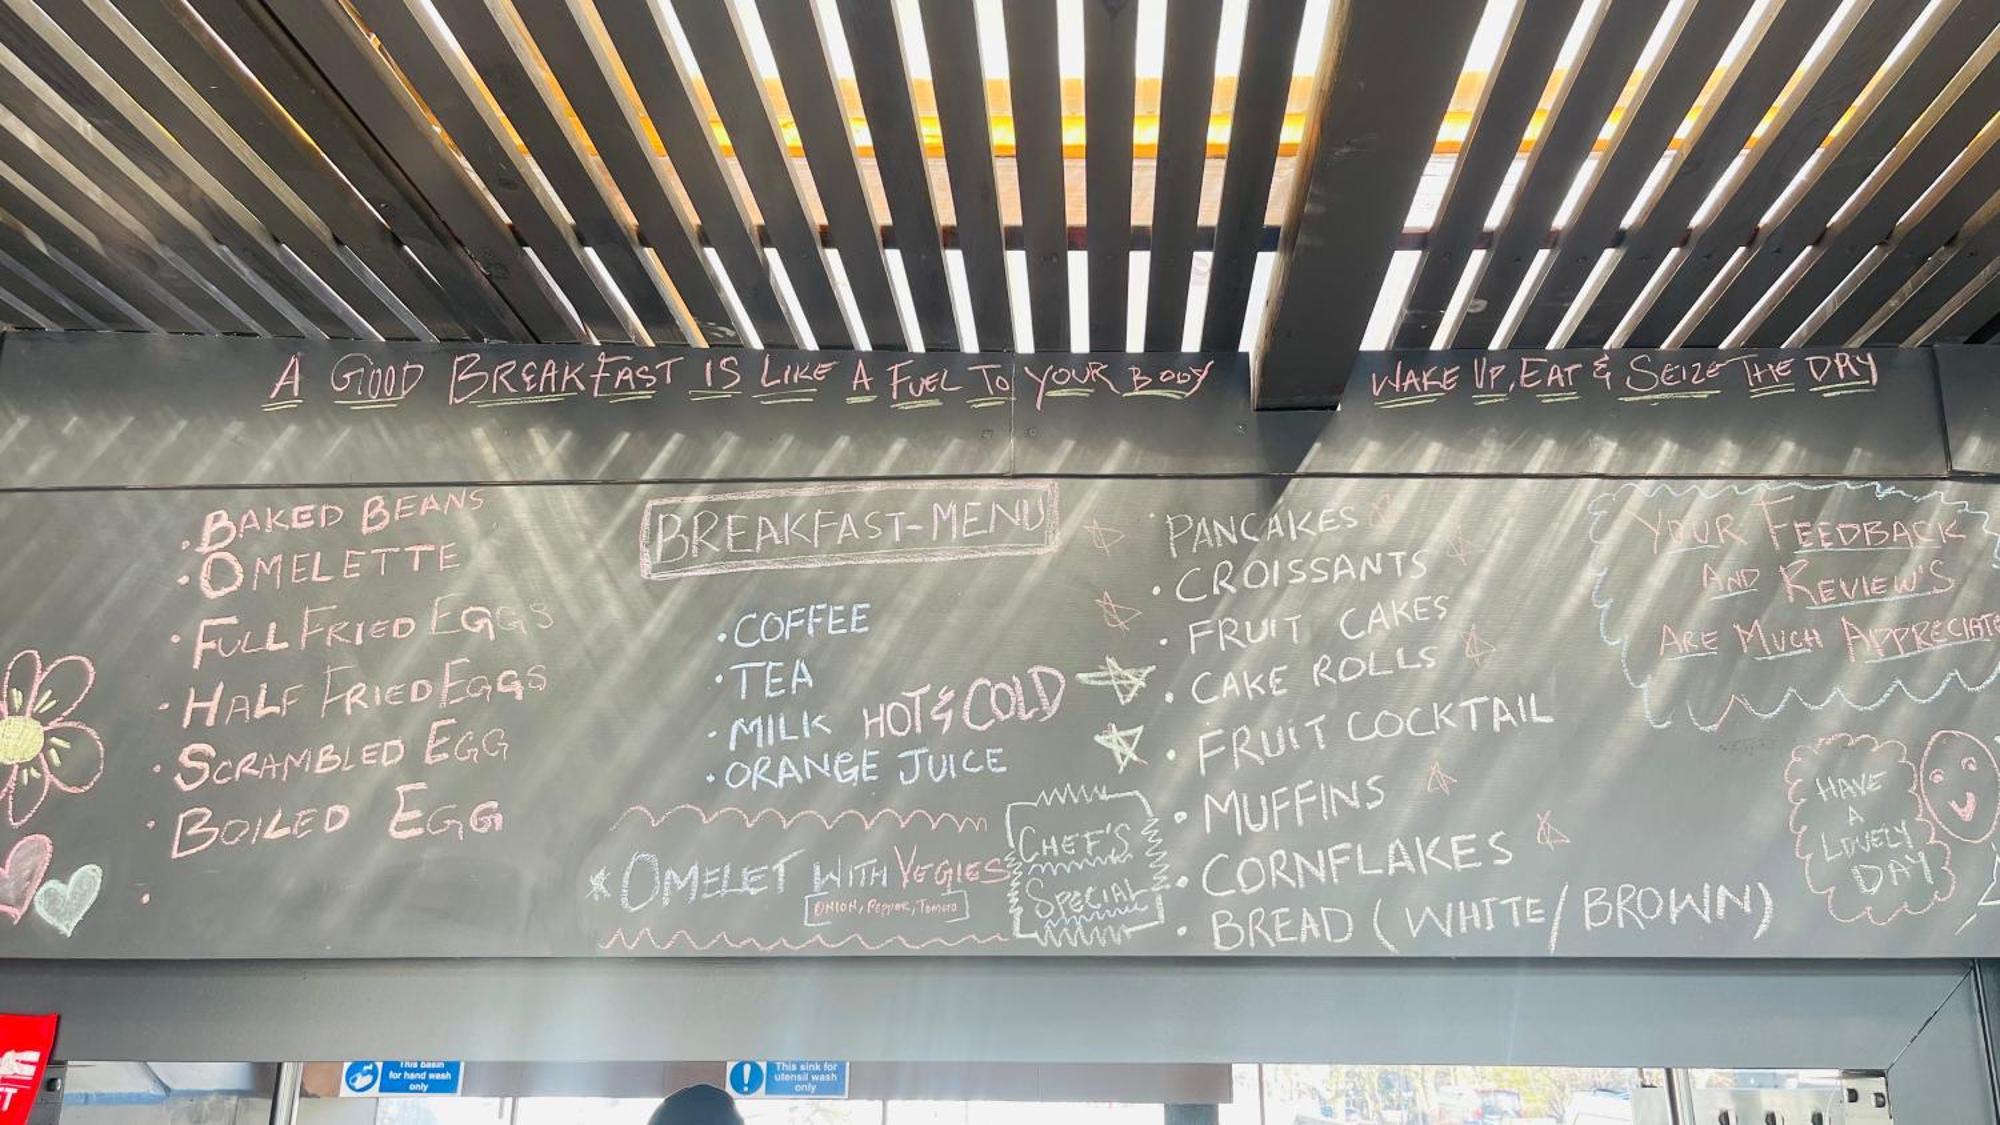 A GOOD BREAKFAST IS LIKE A FUEL TO YOUR BODY
WAKE UP, EAT & SEIZE THE DAY
• BAKED BEANS
• OMELETTE
• FULL FRIED EGGS
• HALF FRIED EGGS
• SCRAMBLED EGG
• BOILED EGG
•
BREAKFAST-MENU
• COFFEE
• TEA
• MILK HOT & COLD
• ORANGE JUICE
* OMELET WITH VEGIES
ONION, PEPPER, TOMATO
CHEF'S
SPECIAL
• PANCAKES
• CROISSANTS
• FRUIT CAKES
• CAKE ROLLS
• FRUIT COCKTAIL
• MUFFINS
• CORNFLAKES
• BREAD (WHITE/BROWN)
YOUR FEEDBACK
AND REVIEW'S
ARE MUCH APPRECIATE
HAVE
A
LOVELY
DAY
This basin
for hand wash
only
This sink for
utensil wash
only